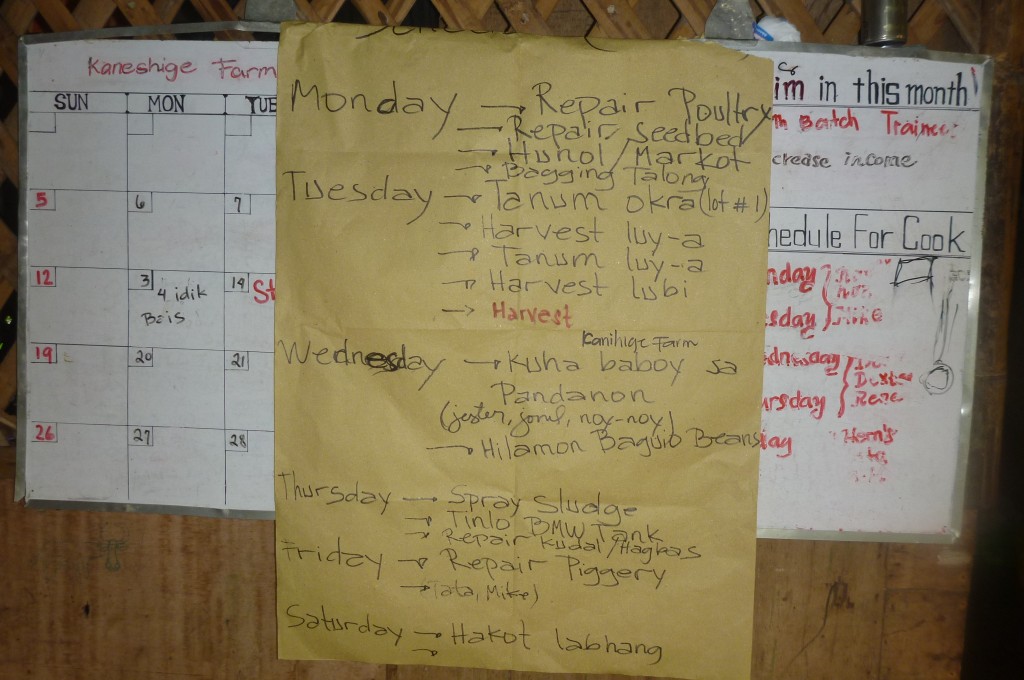 Kaneshige Farm
SUN MON TUE
5 6 7
12 13 14 St
4 idik
Bais
19 20 21
26 27 28
Monday → Repair Poultry
→ Repair Seedbed
→ Hunol/Markot
→ Bagging Talong
Tuesday → Tanum okra (lot #1)
→ Harvest luy-a
→ Tanum luy-a
→ Harvest lubi
→ Harvest
Kanihige Farm
Wednesday → Kuha baboy sa
Pandanon
(jester, jomil, noy-noy)
→ Hilamon Baguio Beans
Thursday → Spray Sludge
→ Tinlo BMW Tank
→ Repair Kudal/Hagbas
Friday → Repair Piggery
→ Tata, Mike)
Saturday → Hakot labhang
→
im in this month
Batch Trainee:
crease income
hedule For Cook
nday
sday } Mike
dnesday
ursday } Dexter
Rene
day